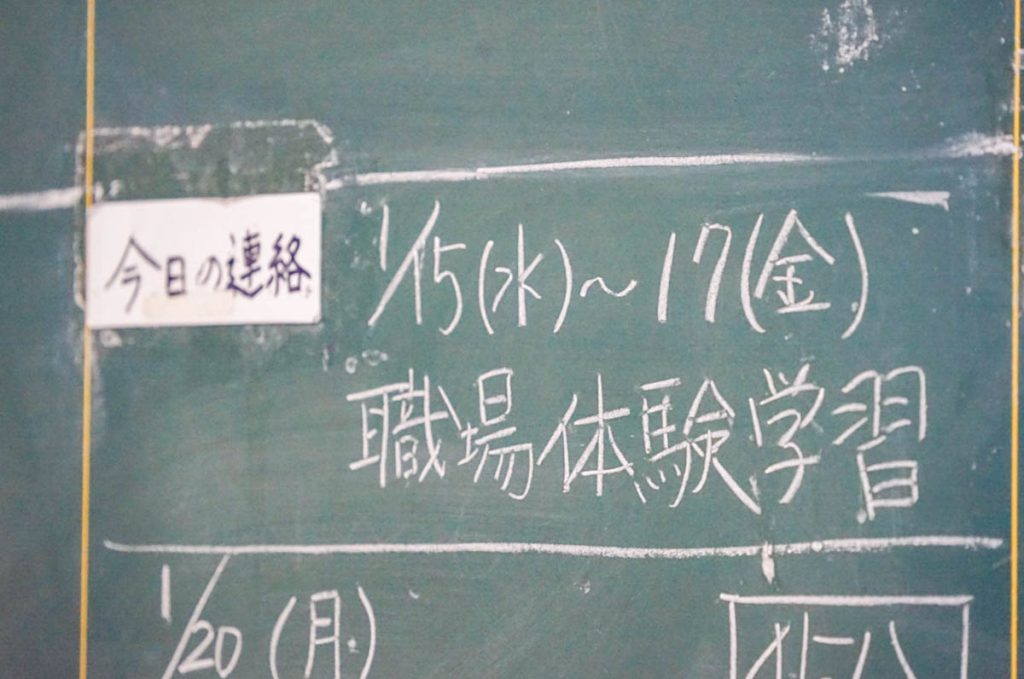 今日の連絡
1/15(水)～17(金)
職場体験学習
1/20(月)